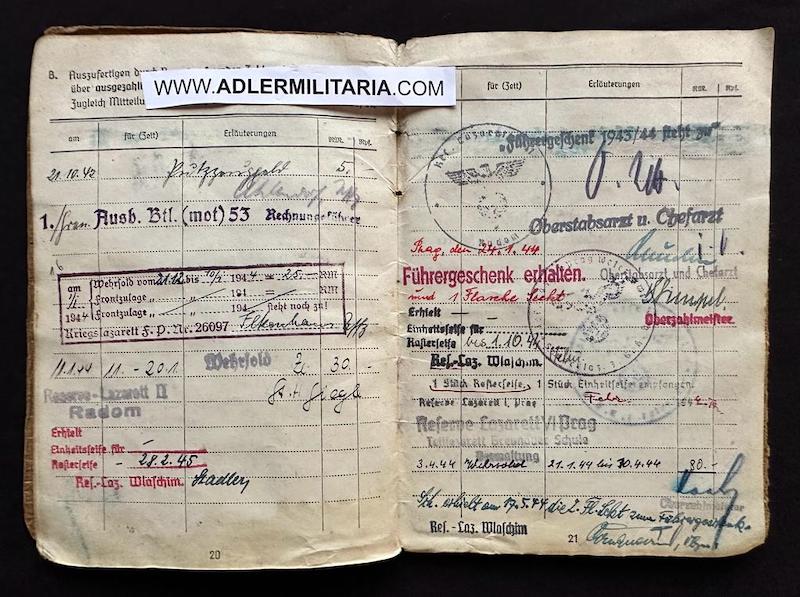 B. Auszufertigen
über ausgezahl
Zugleich Mitteilu
WWW.ADLERMILITARIA.COM
am für (Zeit) Erläuterungen RM. Rpf.
21.10.42 Putzzeuggeld 5,-
1./ Ausb. Btl. (mot) 53 Rechnungsführer
am Wehrsold vom 21.12 bis 10/1 1944 = 25 RM
Frontzulage " " 194 =
1944 Frontzulage " " 194 steht noch zu!
Kriegslazarett F.P. Nr. 26097
11.1.44 11.-20.1 Wehrsold 30.-
Reserve-Lazarett II
Radom
Erhielt
Einheitsseife für
Rasierseife - 28.2.45
Res.-Laz. Wlaschim. Stadler
20
für (Zeit) Erläuterungen RM. Rpf.
Res. Lazarett
Radom
"Führergeschenk 1943/44 steht zu"
Oberstabsarzt u. Chefarzt
Prag, den 24.1.44
Führergeschenk erhalten.
und 1 Flasche Sekt
Oberstabsarzt und Chefarzt
Oberzahlmeister
Erhielt
Einheitsseife für
Rasierseife bis 1.10.44
Res.-Laz. Wlaschim.
1 Stück Rasierseife, 1 Stück Einheitsseife empfangen.
Reserve Lazarett I, Prag Febr. 194
Reserve Lazarett VI Prag
Teillazarett Schule
Verwaltung
3.4.44 Wehrsold 21.1.44 bis 30.4.44 80.-
Oberzahlmeister
erhielt am 17.5.44 die 2. Fl. Sekt zum Führergeschenk.
Res.-Laz. Wlaschim
21